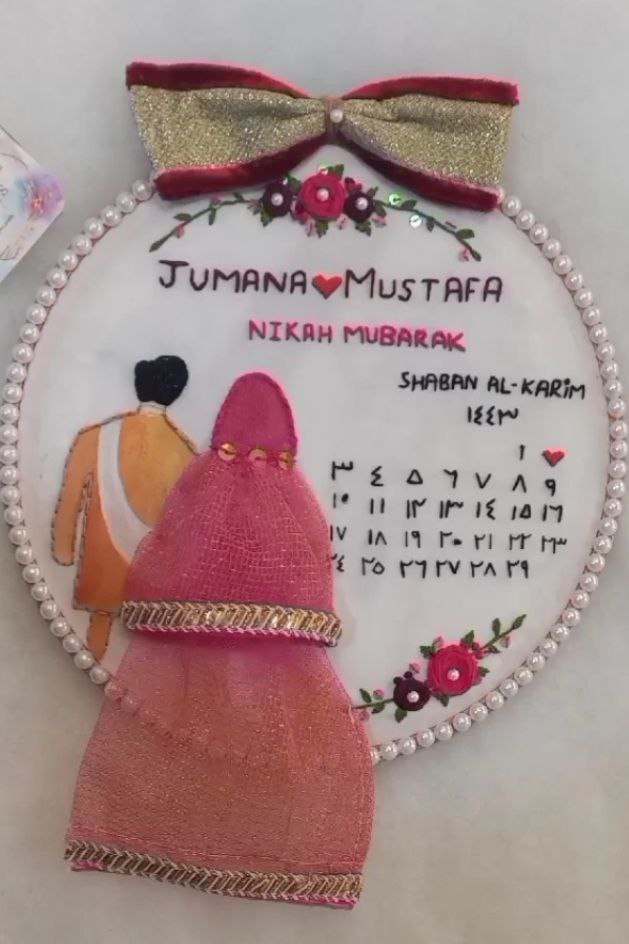 JUMANA❤MUSTAFA
NIKAH MUBARAK
SHABAN AL-KARIM
١٤٤٣
١ ❤
٣ ٤ ٥ ٦ ٧ ٨ ٩
١٠ ١١ ١٢ ١٣ ١٤ ١٥ ١٦
١٧ ١٨ ١٩ ٢٠ ٢١ ٢٢ ٢٣
٢٤ ٢٥ ٢٦ ٢٧ ٢٨ ٢٩